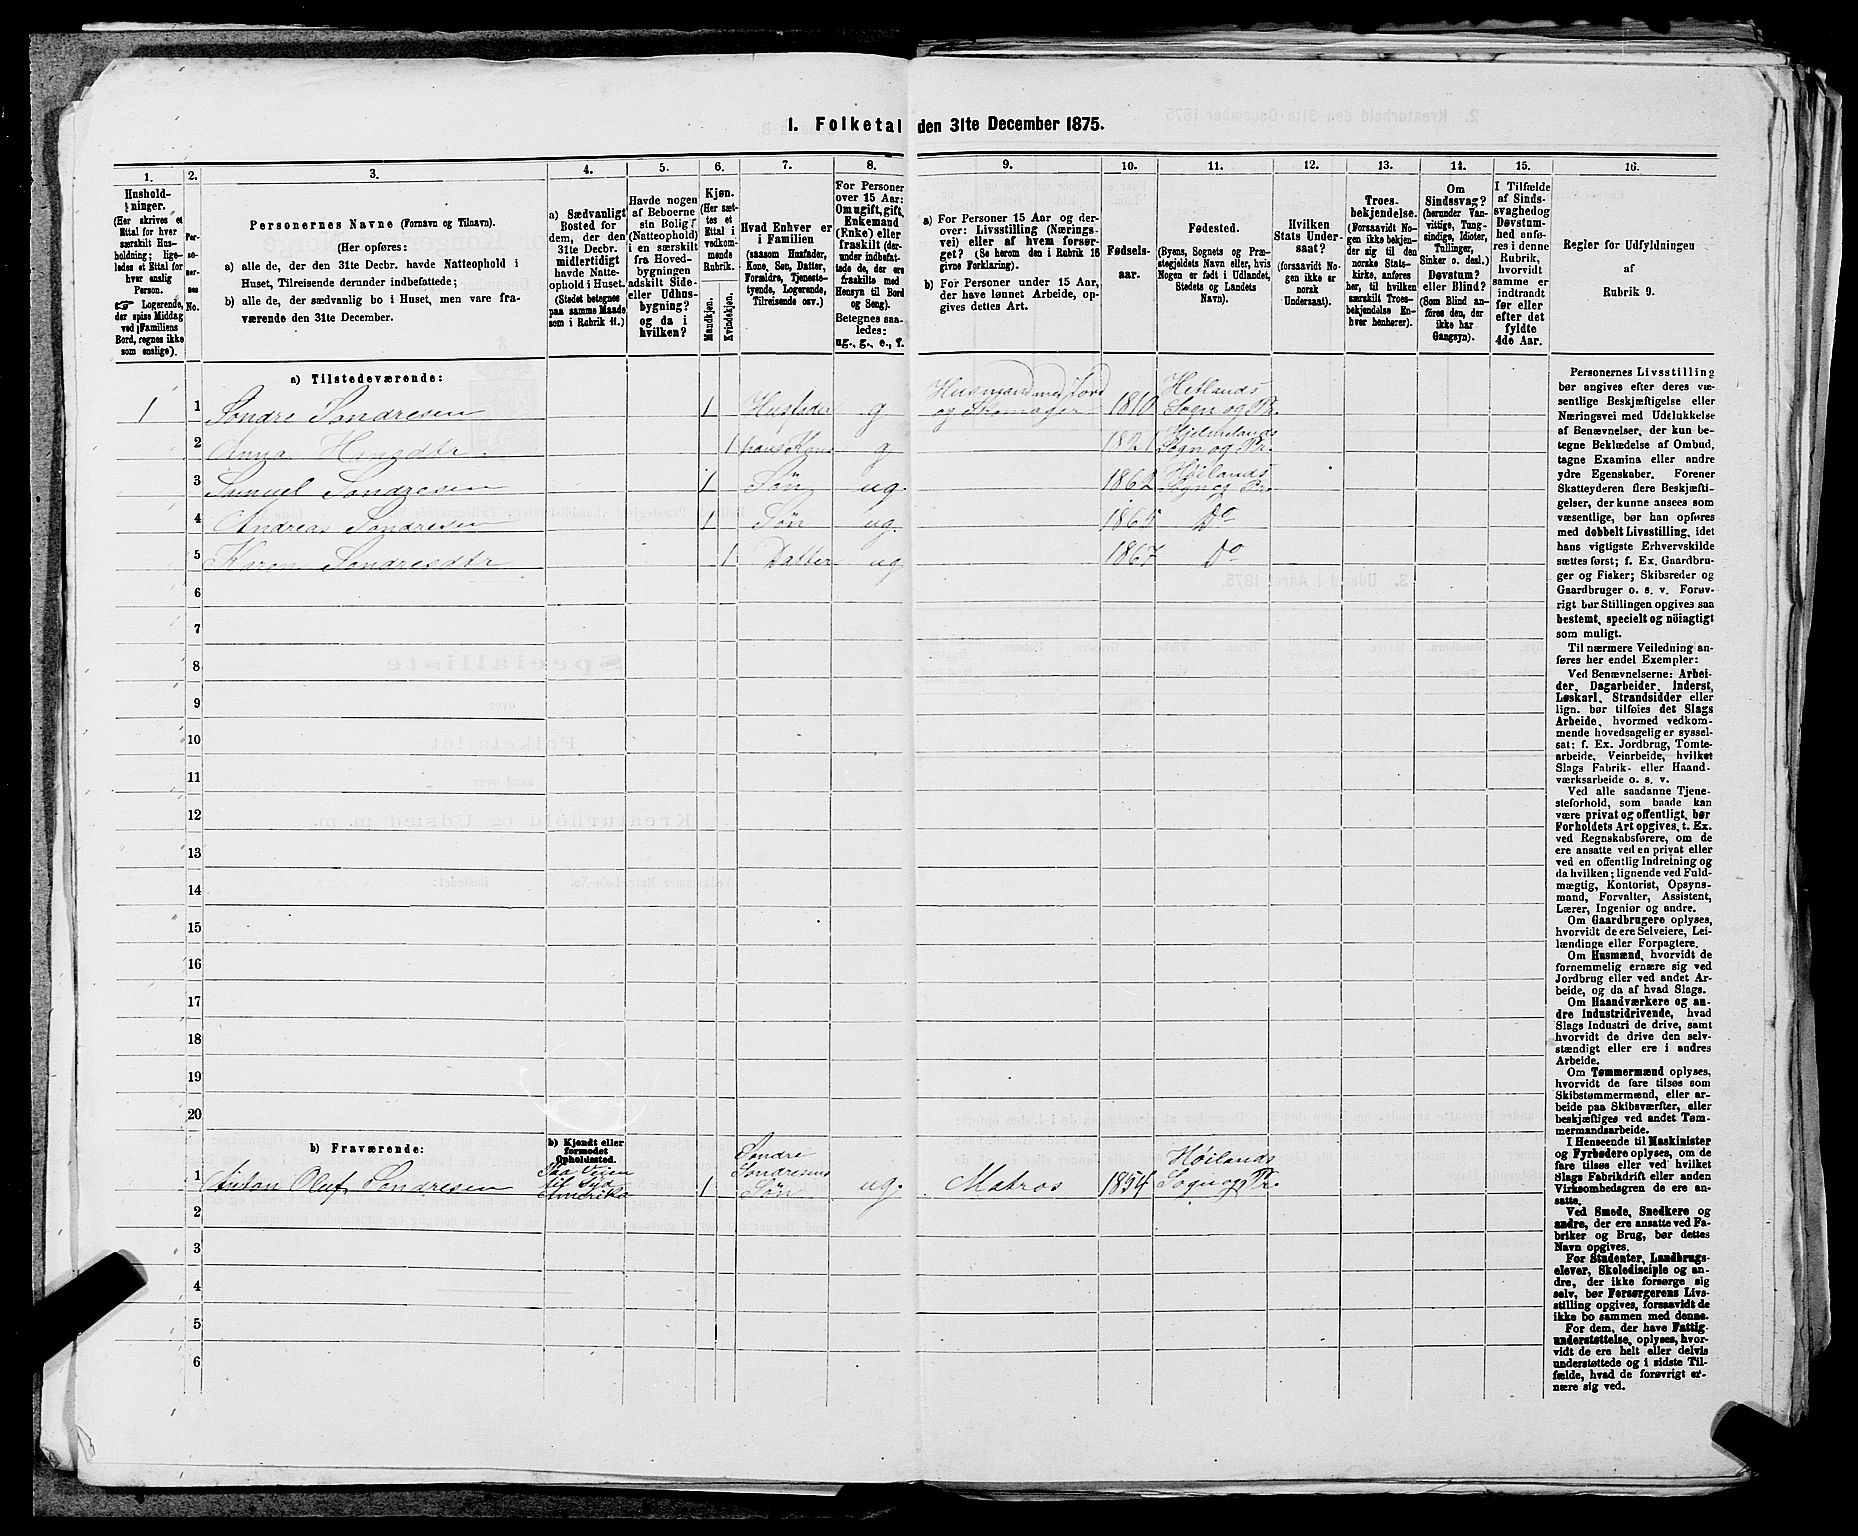 1. Folketal den 31te December 1875.
1. 2. 3. 4. 5. 6. 7. 8. 9. 10. 11. 12. 13. 14. 15. 16.
Hushold-
ninger.
(Her skrives et
Ettal for hver
særskilt Hus-
holdning; lige-
ledes et Ettal for
hver enslig
Person.
☞ Logerende,
der spise Middag
ved Familiens
Bord, regnes ikke
som enslige).
Per-
so-
ner-
nes
No.
Personernes Navne (Fornavn og Tilnavn).
(Her opføres:
a) alle de, der den 31te Decbr. havde Natteophold i
Huset, Tilreisende derunder indbefattede;
b) alle de, der sædvanlig bo i Huset, men vare fra-
værende den 31te December.
a) Sædvanligt
Bosted for
dem, der den
31te Decbr.
midlertidigt
havde Natte-
ophold i Huset.
(Stedet betegnes
paa samme Maade
som i Rubrik 11.)
Havde nogen
af Beboerne
sin Bolig
(Natteophold)
i en særskilt
fra Hoved-
bygningen
adskilt Side-
eller Udhus-
bygning?
og da i
hvilken?
Kjøn.
(Her sæt-
tes et
Ettal i
vedkom-
mende
Rubrik.
Mandkjøn.
Kvindekjøn.
Hvad Enhver er
i Familien
(saasom Husfader,
Kone, Søn, Datter,
Forældre, Tjeneste-
tyende, Logerende,
Tilreisende osv.)
For Personer
over 15 Aar:
Om ugift, gift,
Enkemand
(Enke) eller
fraskilt (der-
under indbefat-
tede de, der ere
fraskilte med
Hensyn til Bord
og Seng).
Betegnes saa-
ledes:
ug., g., e., f.
a) For Personer 15 Aar og der-
over: Livsstilling (Nærings-
vei) eller af hvem forsør-
get? (Se herom den i Rubrik 16
givne Forklaring).
b) For Personer under 15 Aar,
der have lønnet Arbeide, op-
gives dettes Art.
Fødsels-
aar.
Fødested.
(Byens, Sognets og Præ-
stegjeldets Navn eller, hvis
Nogen er født i Udlandet,
Stedets og Landets
Navn).
Hvilken
Stats Under-
saat?
(forsaavidt No-
gen ikke er
norsk
Undersaat).
Troes-
bekjendelse.
(Forsaavidt No-
gen ikke bekjen-
der sig til den
norske Stats-
kirke, anføres
her, til hvilken
særskilt Troes-
bekjendelse En-
hver henhører).
Om
Sindssvag?
(herunder Van-
vittige, Tung-
sindige, Idioter,
Tullinger,
Sinker o. desl.)
Døvstum?
eller Blind?
(Som Blind an-
føres den, der
ikke har
Gangsyn).
I Tilfælde
af Sinds-
svaghed og
Døvstum-
hed anfø-
res i denne
Rubrik,
hvorvidt
samme er
indtraadt
før eller
efter det
fyldte
4de Aar.
Regler for Udfyldningen
af
Rubrik 9.
a) Tilstedeværende:
1 1 Søndre Søndresen 1 Husfader g Husmand med Jord og Skomager 1810 Hetlands Sogn og Pr.
2 Anna 1 hans Kone g 1821 Hjelmelands Sogn og Pr.
3 Samuel Søndresen 1 Søn ug. 1862 Høilands Sogn og Pr.
4 Andreas Søndresen 1 Søn ug. 1865 Do
5 Karen Søndresdtr 1 Datter ug 1867 Do
6
7
8
9
10
11
12
13
14
15
16
17
18
19
20
b) Fraværende:
b) Kjendt eller
formodet
Opholdssted.
1 Anton Oluf Søndresen Paa Veien til Syd Amerika 1 Søndre Søndresens Søn ug. Matros 1854 Høilands Sogn og Pr.
2
3
4
5
6
Personernes Livsstilling
bør angives efter deres væ-
sentlige Beskjæftigelse eller
Næringsvei med Udelukkelse
af Benævnelser, der kun be-
tegne Beklædelse af Ombud,
tagne Examina eller andre
ydre Egenskaber. Forener
Skatteyderen flere Beskjæfti-
gelser, der kunne ansees som
væsentlige, bør han opføres
med dobbelt Livsstilling, idet
hans vigtigste Erhvervskilde
sættes først; f. Ex. Gaardbru-
ger og Fisker; Skibsreder og
Gaardbruger o. s. v. Forøv-
rigt bør Stillingen opgives saa
bestemt, specielt og nöiagtigt
som muligt.
Til nærmere Veiledning an-
føres her endel Exempler:
Ved Benævnelserne: Arbei-
der, Dagarbeider, Inderst,
Løskarl, Strandsidder eller
lign. bør tilføies det Slags
Arbeide, hvormed vedkom-
mende hovedsagelig er syssel-
sat; f. Ex. Jordbrug, Tomte-
arbeide, Veiarbeide, hvilket
Slags Fabrik- eller Haand-
værksarbeide o. s. v.
Ved alle saadanne Tjene-
steforhold, som baade kan
være privat og offentligt, bør
Forholdets Art opgives, t. Ex.
ved Regnskabsførere, om de
ere ansatte ved en privat eller
ved en offentlig Indretning og
da hvilken; lignende ved Fuld-
mægtig, Kontorist, Opsyns-
mand, Forvalter, Assistent,
Lærer, Ingeniør og andre.
Om Gaardbrugere oplyses,
hvorvidt de ere Selveiere, Lei-
lændinge eller Forpagtere.
Om Husmænd, hvorvidt de
fornemmelig ernære sig ved
Jordbrug eller ved andet Ar-
beide, og da af hvad Slags.
Om Haandværkere og an-
dre Industridrivende, hvad
Slags Industri de drive, samt
hvorvidt de drive den selv-
stændigt eller ere i andres
Arbeide.
Om Tømmermænd oplyses,
hvorvidt de fare tilsøs som
Skibstømmermænd, eller ar-
beide paa Skibsværfter, eller
beskjæftiges ved andet Tøm-
mermandsarbeide.
I Henseende til Maskinister
og Fyrbødere oplyses, om de
fare tilsøs eller ved hvilket
Slags Fabrikdrift eller anden
Virksomhedsgren de ere an-
satte.
Ved Smede, Snedkere og
andre, der ere ansatte ved Fa-
briker og Brug, bør dettes
Navn opgives.
For Studenter, Landbrugs-
elever, Skoledisciple og an-
dre, der ikke forsørge sig
selv, bør Forsørgerens Livs-
stilling opgives, forsaavidt de
ikke bo sammen med denne.
For dem, der have Fattig-
understøttelse, oplyses, hvor-
vidt de ere helt eller delvis
understøttede og i sidste Til-
fælde, hvad de forøvrigt er-
nære sig ved.